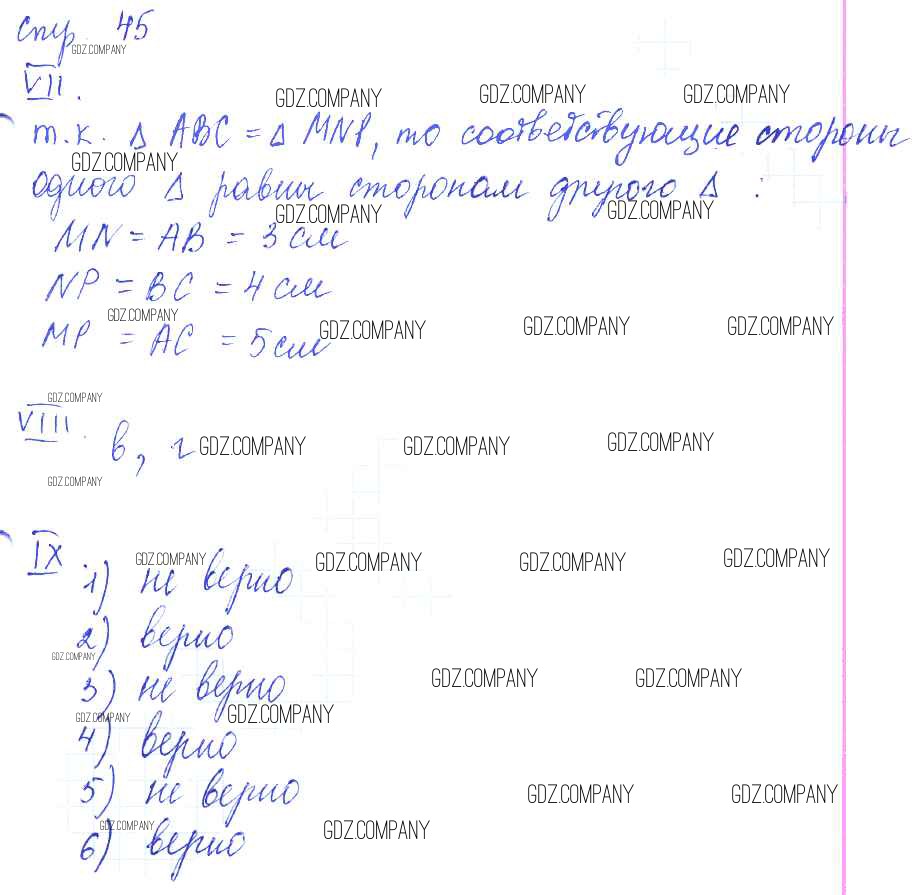 стр. 45
GDZ.COMPANY
VII.
GDZ.COMPANY GDZ.COMPANY GDZ.COMPANY
т.к. Δ ABC = Δ MNP, то соответствующие стороны
GDZ.COMPANY
одного Δ равны сторонам другого Δ :
GDZ.COMPANY GDZ.COMPANY
MN = AB = 3 см
NP = BC = 4 см
GDZ.COMPANY GDZ.COMPANY GDZ.COMPANY GDZ.COMPANY
MP = AC = 5 см
GDZ.COMPANY
VIII. в, г
GDZ.COMPANY GDZ.COMPANY GDZ.COMPANY
GDZ.COMPANY
IX.
GDZ.COMPANY GDZ.COMPANY GDZ.COMPANY GDZ.COMPANY
1) не верно
2) верно
GDZ.COMPANY
3) не верно
GDZ.COMPANY GDZ.COMPANY
GDZ.COMPANY GDZ.COMPANY
4) верно
5) не верно
GDZ.COMPANY GDZ.COMPANY
GDZ.COMPANY GDZ.COMPANY
6) верно